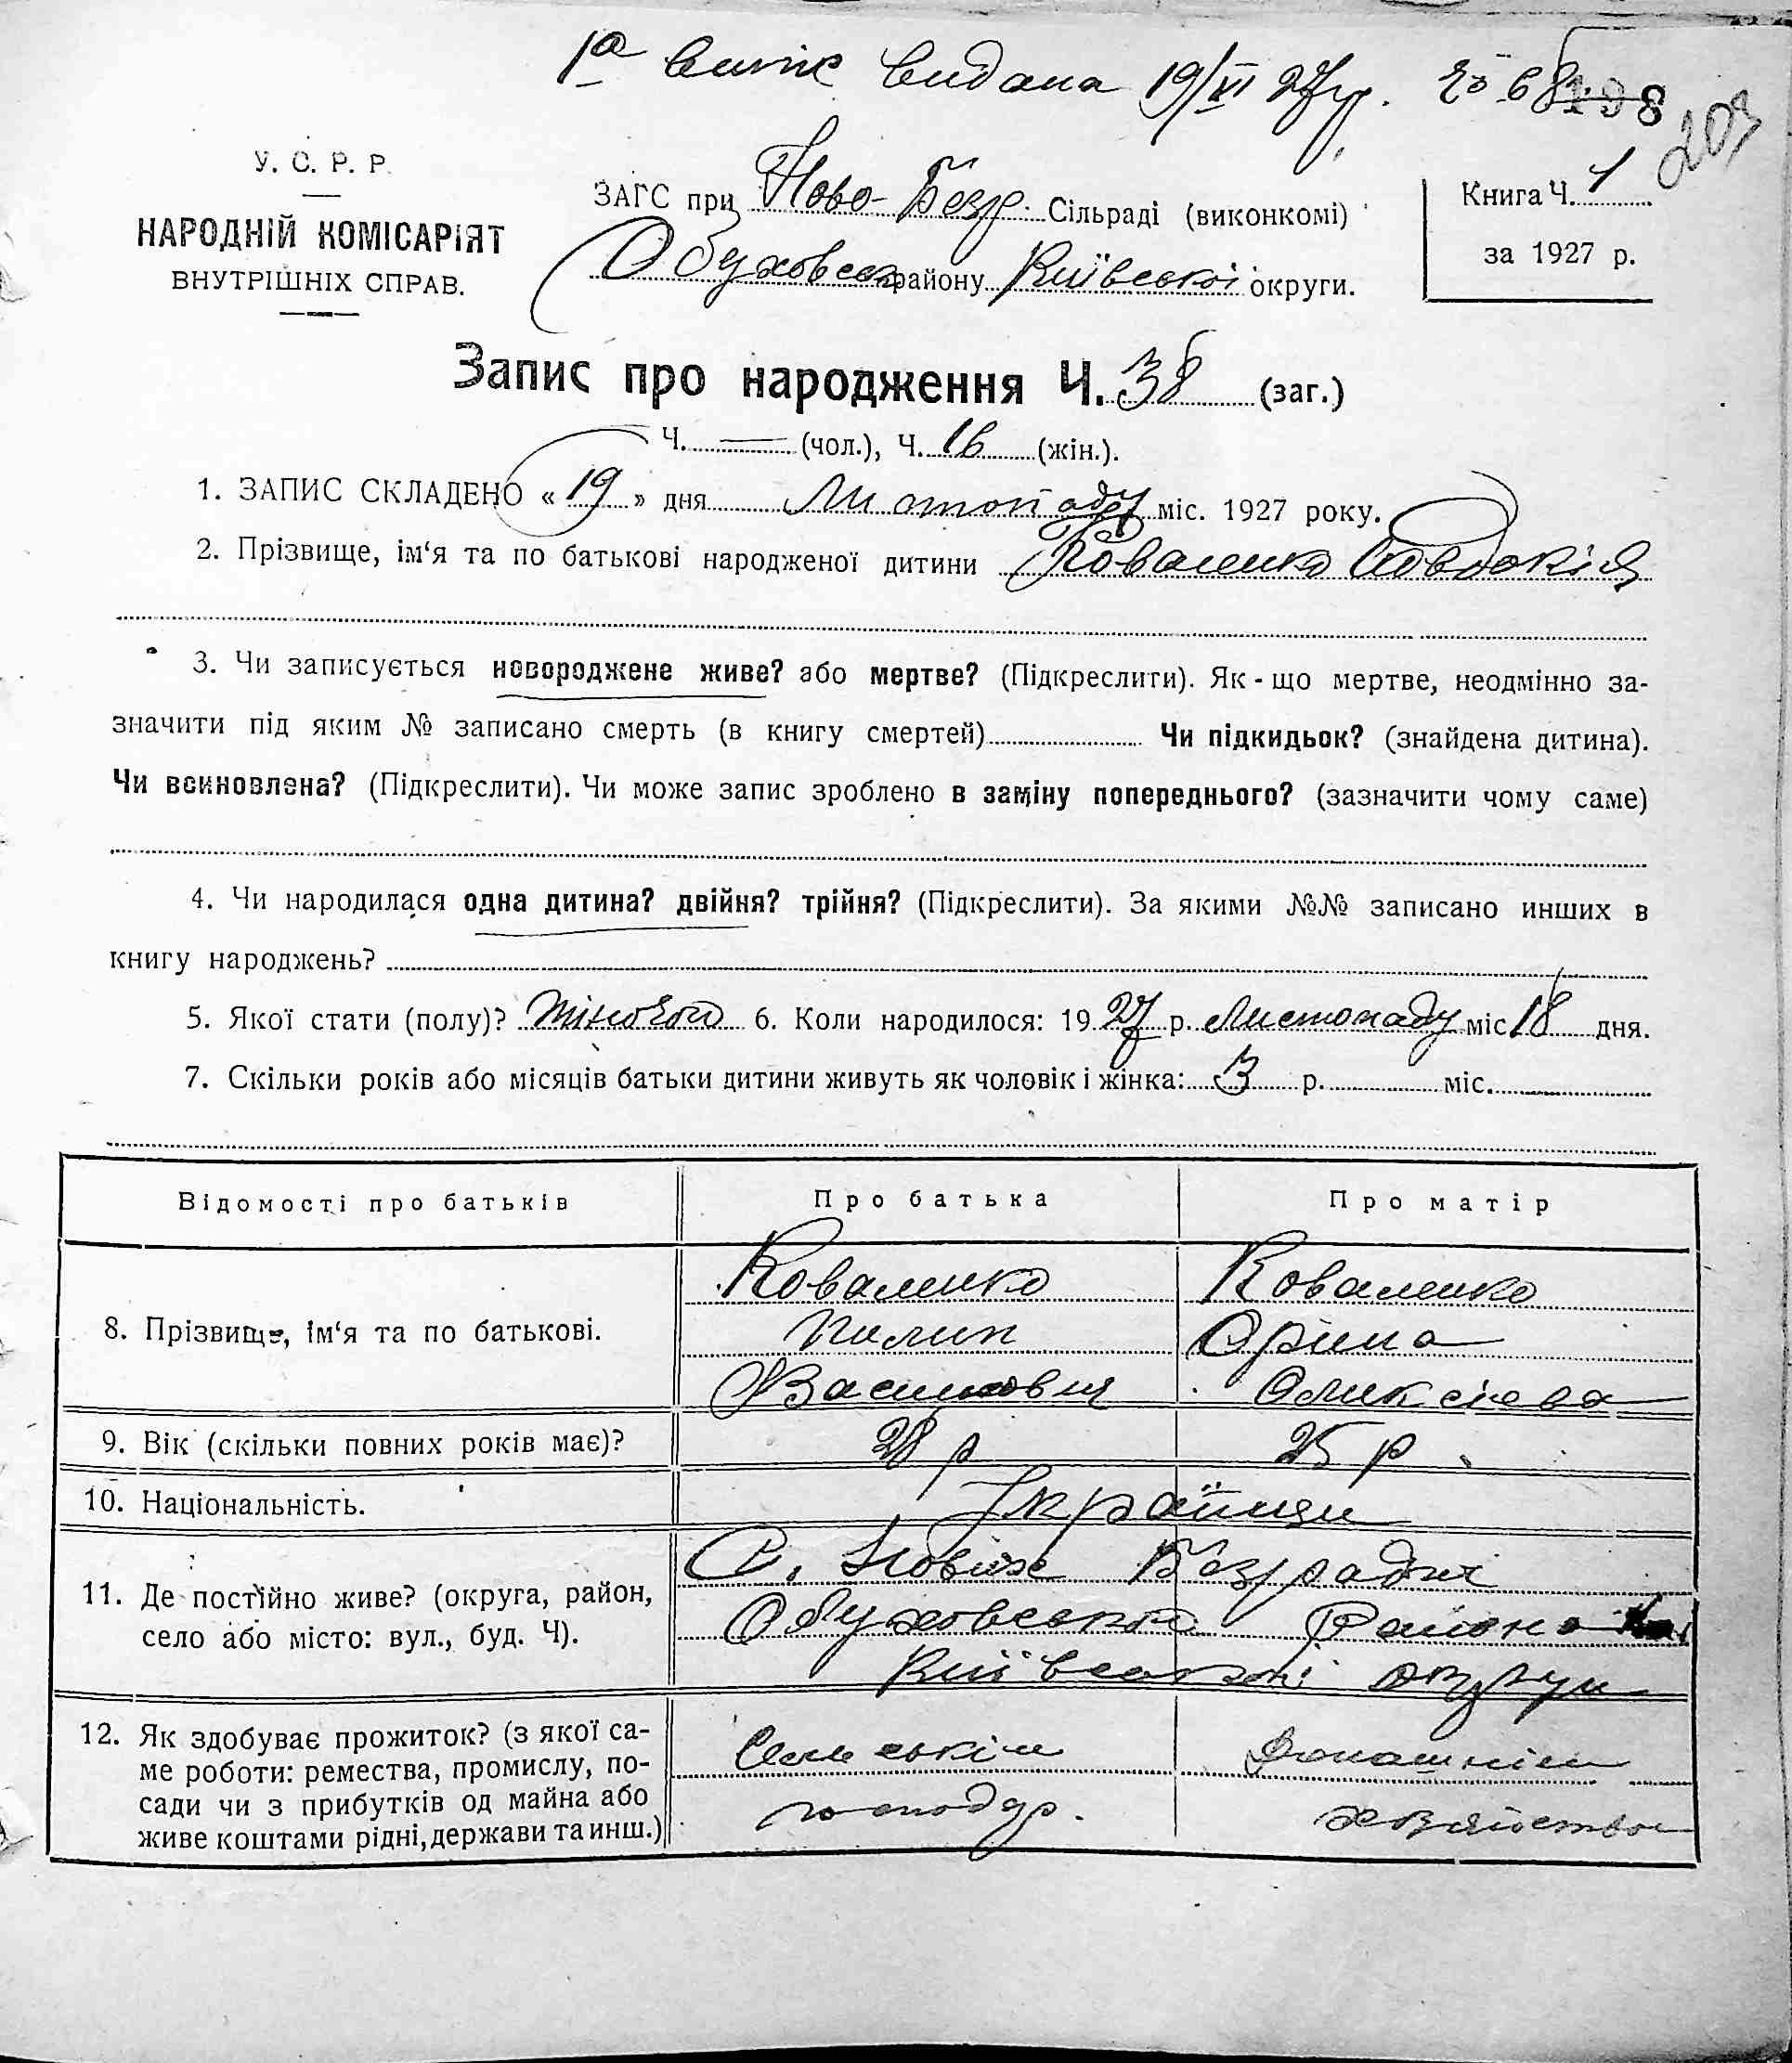 видана 19/VI 27 р.
198
203
У. С. Р. Р.
НАРОДНІЙ КОМІСАРІЯТ
ВНУТРІШНІХ СПРАВ.
ЗАГС при Ново-Безр. Сільраді (виконкомі)
Обуховськ району Київської округи.
Книга Ч. 1
за 1927 р.
Запис про народження Ч. 38 (заг.)
Ч. — (чол.), Ч. 16 (жін.).
1. ЗАПИС СКЛАДЕНО «19» дня Листопаду міс. 1927 року.
2. Прізвище, ім‘я та по батькові народженої дитини Коваленко Євдокія
3. Чи записується новороджене живе? або мертве? (Підкреслити). Як-що мертве, неодмінно за-
значити під яким № записано смерть (в книгу смертей) Чи підкидьок? (знайдена дитина).
Чи всиновлена? (Підкреслити). Чи може запис зроблено в заміну попереднього? (зазначити чому саме)
4. Чи народилася одна дитина? двійня? трійня? (Підкреслити). За якими №№ записано инших в
книгу народжень?
5. Якої стати (полу)? Жіночого 6. Коли народилося: 1927 р. Листопаду міс 18 дня.
7. Скільки років або місяців батьки дитини живуть як чоловік і жінка: 3 р. міс.
Відомості про батьків Про батька Про матір
8. Прізвище, ім‘я та по батькові.
Коваленко
Пилип
Васильович
Коваленко
Орина
Олексієва
9. Вік (скільки повних років має)? 28 р 25 р.
10. Національність. Українци
11. Де постійно живе? (округа, район,
село або місто: вул., буд. Ч).
С. Нових Безрадич
Обуховського Района
Київської округи
12. Як здобуває прожиток? (з якої са-
ме роботи: ремества, промислу, по-
сади чи з прибутків од майна або
живе коштами рідні, держави та инш.)
Сільським
господар.
Домашнім
хозяйством